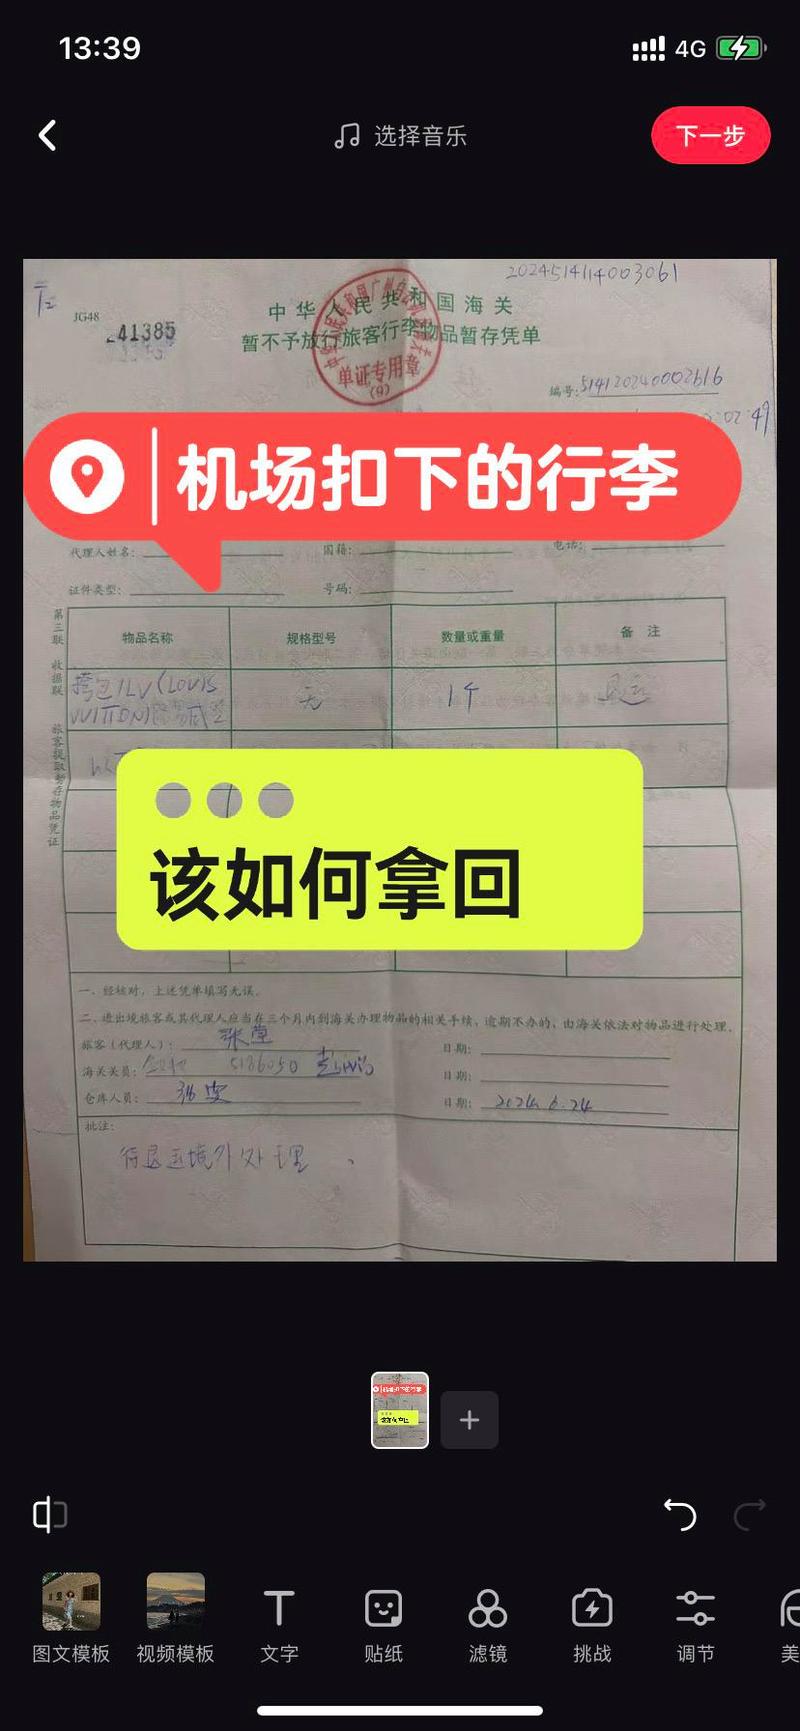 13:39
4G
选择音乐
下一步
2024514114003061
JG48
41385
中华人民共和国海关
暂不予放行旅客行李物品暂存凭单
单证专用章
(9)
编号:514120240002616
:02:49
机场扣下的行李
代理人姓名:
国籍:
电话:
证件类型:
号码:
第三联 收据联 旅客提取暂存物品凭证
物品名称
规格型号
数量或重量
备 注
挎包/LV(LOUIS
VUITTON)
无
1个
退运
该如何拿回
一、经核对,上述凭单填写无误。
二、进出境旅客或其代理人应当在三个月内到海关办理物品的相关手续,逾期不办的,由海关依法对物品进行处理。
旅客(代理人):
日期:
海关关员: 5186050
日期:
仓库人员:
日期: 2024.6.24
批注:
待退运境外处理、
图文模板
视频模板
文字
贴纸
滤镜
挑战
调节
美